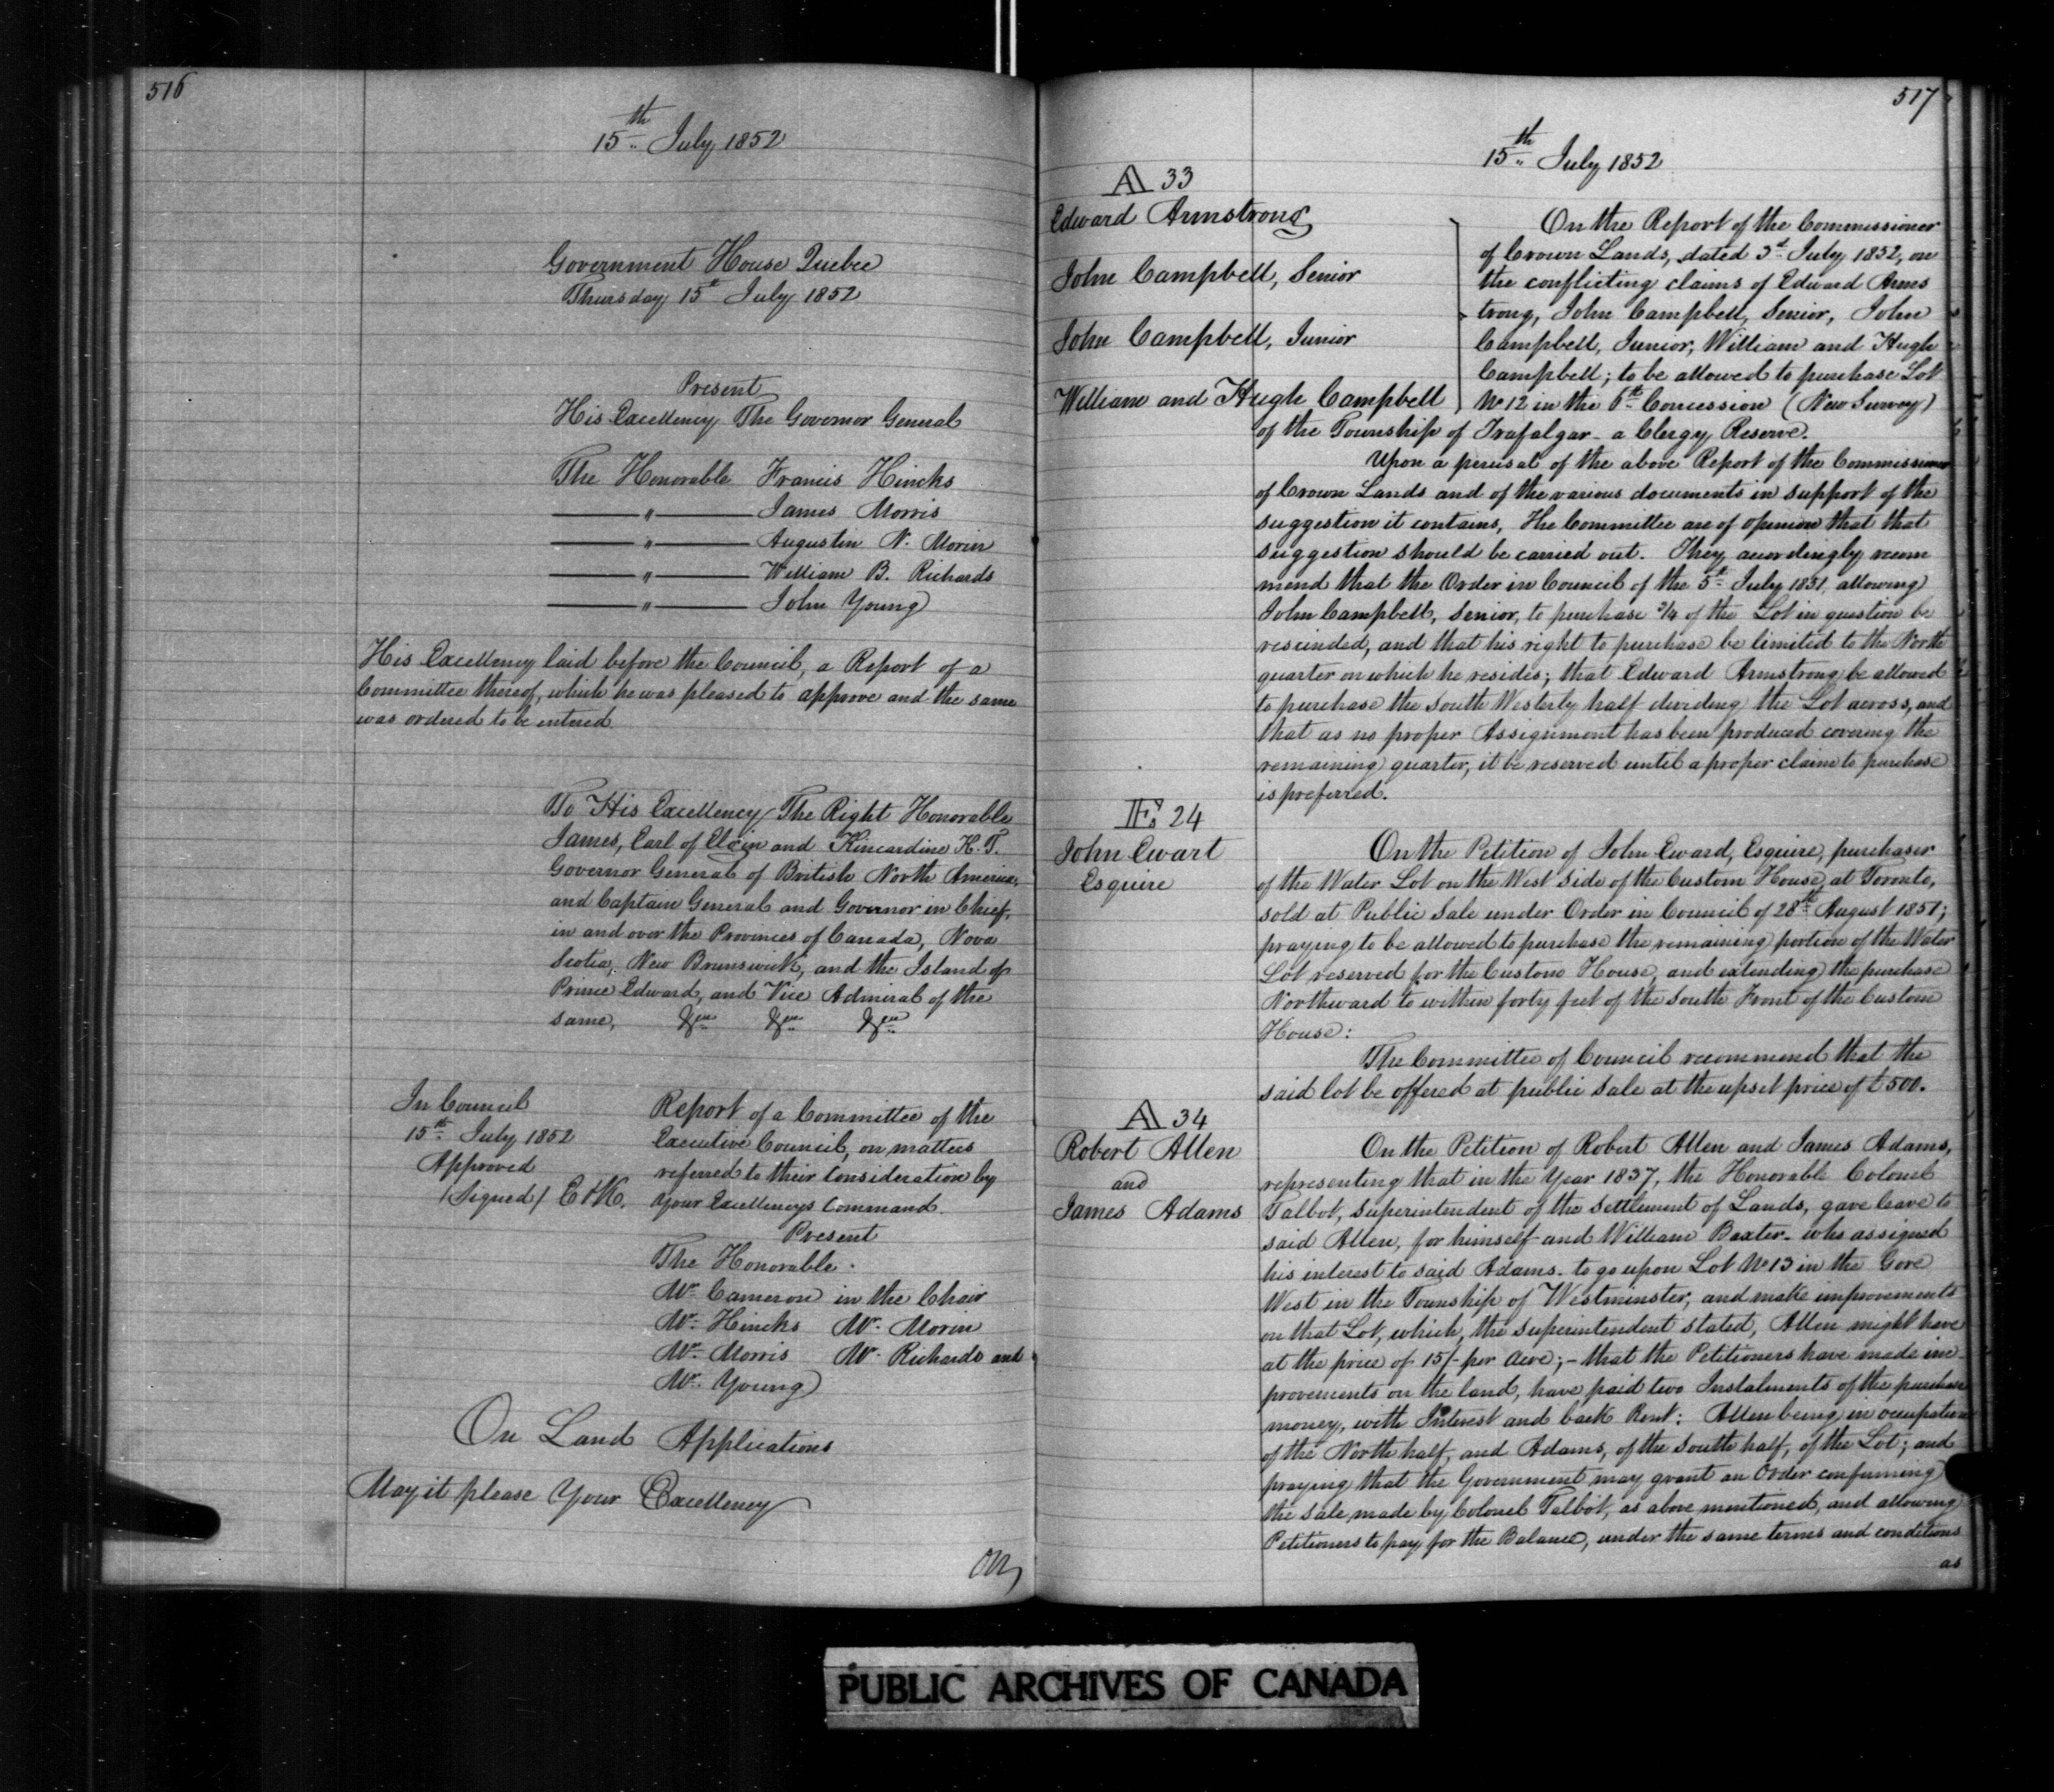 516
15th July 1852
Government House Quebec
Thursday 15th July 1852
Present
His Excellency The Governor General
The Honorable Francis Hincks
" James Morris
" Augustin N. Morin
" William B. Richards
" John Young
His Excellency laid before the Council, a Report of a
Committee thereof, which he was pleased to approve and the same
was ordered to be entered
To His Excellency The Right Honorable
James, Earl of Elgin and Kincardine K.T.
Governor General of British North America,
and Captain General and Governor in Chief,
in and over the Provinces of Canada, Nova
Scotia, New Brunswick, and the Island of
Prince Edward, and Vice Admiral of the
same, &ca &ca &ca
In Council
15th July 1852
Approved
(Signed) E & K.
Report of a Committee of the
Executive Council, on matters
referred to their consideration by
Your Excellencys Command.
Present
The Honorable
Mr. Cameron in the Chair
Mr. Hincks Mr. Morin
Mr. Morris Mr. Richards and
Mr. Young
On Land Applications
May it please Your Excellency
On
517
15th July 1852
A 33
Edward Armstrong
John Campbell, Senior
John Campbell, Junior
William and Hugh Campbell
On the Report of the Commissioner
of Crown Lands, dated 3d July 1852, on
the conflicting claims of Edward Arms
trong, John Campbell, Senior, John
Campbell, Junior, William and Hugh
Campbell; to be allowed to purchase Lot
No 12 in the 6th Concession (New Survey)
of the Township of Trafalgar - a Clergy Reserve.
Upon a perusal of the above Report of the Commissioner
of Crown Lands and of the various documents in support of the
suggestion it contains, The Committee are of opinion that that
suggestion should be carried out. They accordingly recom
mend that the Order in Council of the 5th July 1851, allowing
John Campbell, Senior, to purchase 3/4 of the Lot in question be
rescinded, and that his right to purchase be limited to the North
quarter on which he resides; that Edward Armstrong be allowed
to purchase the South Westerly half dividing the Lot across, and
that as no proper Assignment has been produced covering the
remaining quarter, it be reserved until a proper claim to purchase
is preferred.
E 24
John Ewart
Esquire
On the Petition of John Eward, Esquire, purchaser
of the Water Lot on the West side of the Custom House, at Toronto,
sold at Public Sale under Order in Council of 28th August 1851;
praying to be allowed to purchase the remaining portion of the Water
Lot reserved for the Custom House, and extending the purchase
Northward to within forty feet of the South Front of the Custom
House:
The Committee of Council recommend that the
said lot be offered at public sale at the upset price of £500.
A 34
Robert Allen
and
James Adams
On the Petition of Robert Allen and James Adams,
representing that in the Year 1837, the Honorable Colonel
Talbot, Superintendent of the Settlement of Lands, gave leave to
said Allen, for himself and William Baxter - who assigned
his interest to said Adams - to go upon Lot No 13 in the Gore
West in the Township of Westminster, and make improvements
on that Lot, which, the Superintendent stated, Allen might have
at the price of 15/- per Acre; - that the Petitioners have made im
provements on the land, have paid two Instalments of the purchase
money, with Interest and back Rent; Allen being in occupation
of the North half, and Adams, of the South half, of the Lot; and
praying that the Government may grant an Order confirming
the sale made by Colonel Talbot, as above mentioned, and allowing
Petitioners to pay for the Balance, under the same terms and conditions
as
PUBLIC ARCHIVES OF CANADA